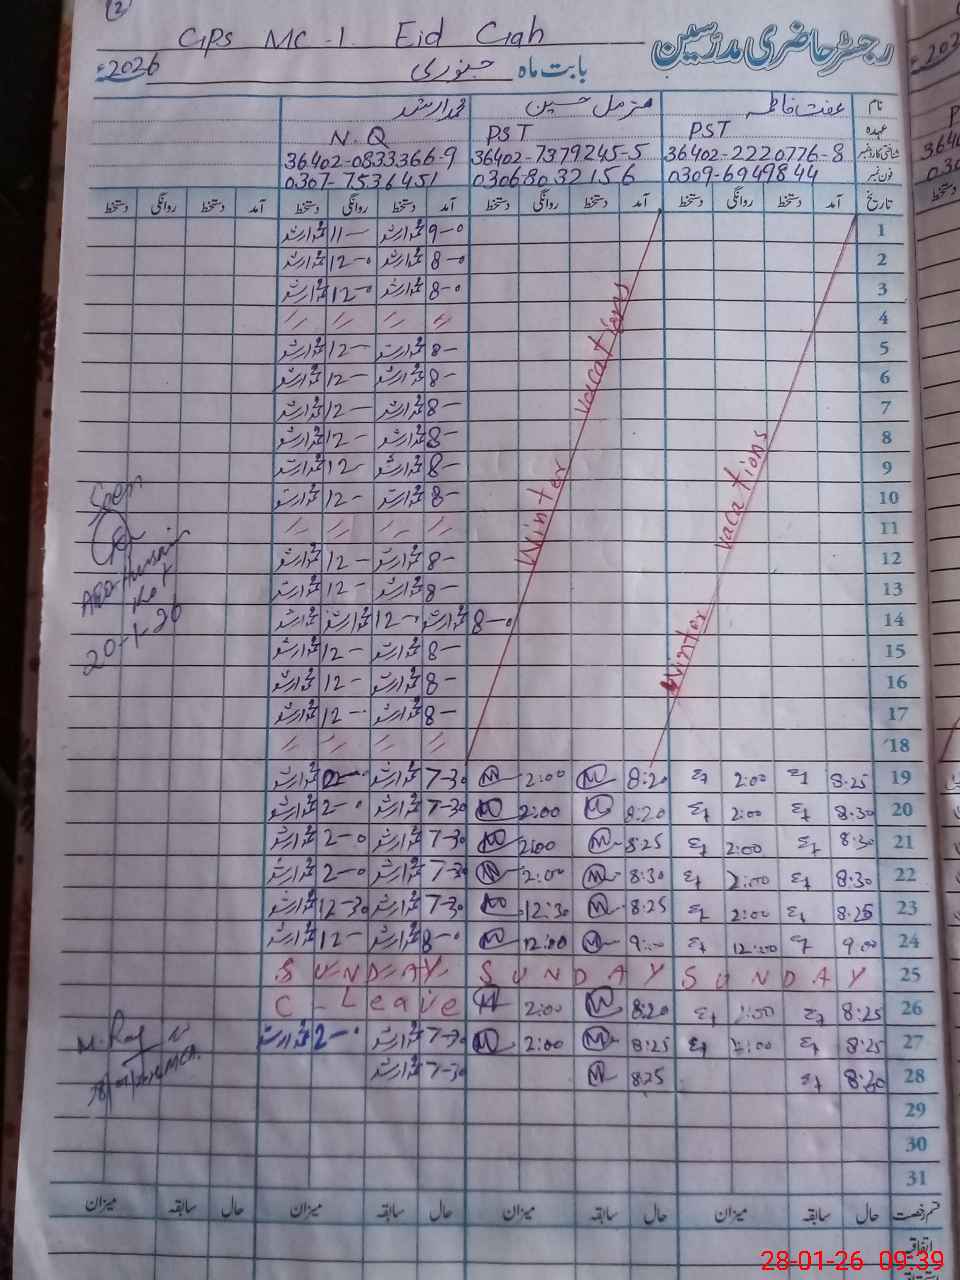 (2)
GPS MC-1 Eid Gah
رجسٹر حاضری مدرسین
بابت ماہ جنوری 2026ء
نام عفت فاطمہ مزمل حسین محمد ارشد
عہدہ PST PST N.Q
شناختی کارڈ نمبر 36402-2220776-8 36402-7379245-5 36402-0833366-9
فون نمبر 0309-6949844 03068032156 0307-7536451
تاریخ آمد دستخط روانگی دستخط آمد دستخط روانگی دستخط آمد دستخط روانگی دستخط آمد دستخط روانگی دستخط
Winter vacations
Winter vacations
1 9-0 محمد ارشد 11- محمد ارشد
2 8-0 محمد ارشد 12-0 محمد ارشد
3 8-0 محمد ارشد 12-0 محمد ارشد
4 〃 〃 〃 〃
5 8- محمد ارشد 12- محمد ارشد
6 8- محمد ارشد 12- محمد ارشد
7 8- محمد ارشد 12- محمد ارشد
8 8- محمد ارشد 12- محمد ارشد
9 8- محمد ارشد 12- محمد ارشد
10 8- محمد ارشد 12- محمد ارشد
11 〃 〃 〃 〃
12 8- محمد ارشد 12- محمد ارشد
13 8- محمد ارشد 12- محمد ارشد
14 8-0 محمد ارشد 12-0 محمد ارشد محمد ارشد
15 8- محمد ارشد 12- محمد ارشد
16 8- محمد ارشد 12- محمد ارشد
17 8- محمد ارشد 12- محمد ارشد
18 〃 〃 〃 〃
19 8:25 2:00 8:20 M 2:00 M 7-30 محمد ارشد 2-0 محمد ارشد
20 8:30 2:00 8:20 M 2:00 M 7-30 محمد ارشد 2-0 محمد ارشد
21 8:30 2:00 8:25 M 2:00 M 7-30 محمد ارشد 2-0 محمد ارشد
22 8:30 2:00 8:30 M 2:00 M 7-30 محمد ارشد 2-0 محمد ارشد
23 8:25 2:00 8:25 M 12:30 M 7-30 محمد ارشد 12-30 محمد ارشد
24 9:00 12:00 9:00 M 12:00 M 8-0 محمد ارشد 12- محمد ارشد
25 SUNDAY SUNDAY SUNDAY
26 8:25 2:00 8:20 M 2:00 M C-Leave
27 8:25 2:00 8:25 M 2:00 M 7-30 محمد ارشد 2-0 محمد ارشد
28 8:30 8:25 M 7-30 محمد ارشد
29
30
31
Seen
20-1-26
قسم رخصت حال سابقہ میزان حال سابقہ میزان حال سابقہ میزان حال سابقہ میزان
اتفاقیہ
28-01-26 09:39